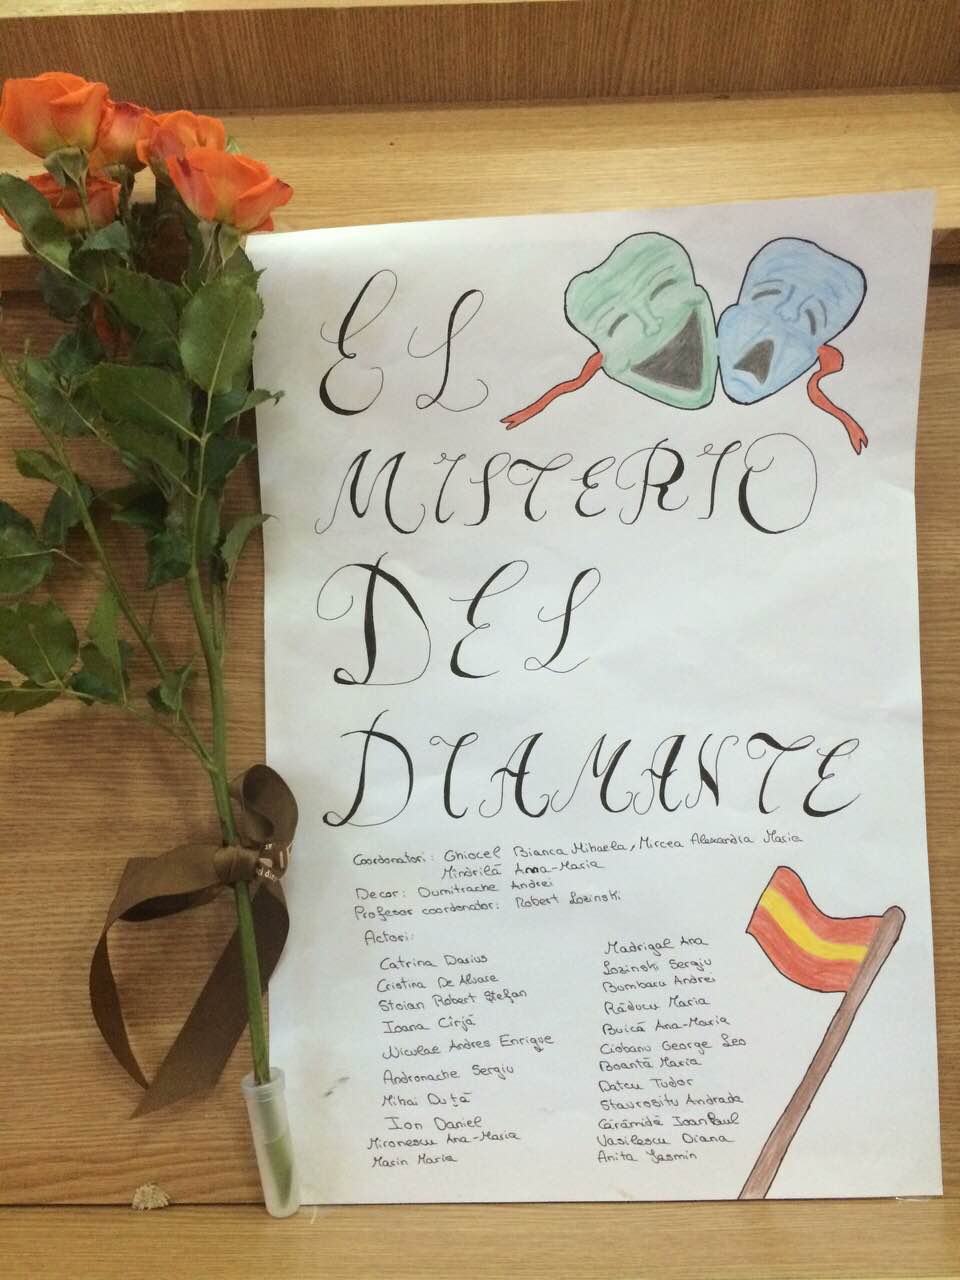 EL
MISTERIO
DEL
DIAMANTE
Coordonatori: Ghiocel Bianca Mihaela, Mircea Alexandra Maria
Mîndrilă Anna-Maria
Decor: Dumitrache Andrei
Profesor coordonator: Robert Lozinski
Actori:
Catrina Darius
Cristina De Alvare
Stoian Robert Ștefan
Ioana Cîrjă
Niculae Andres Enrique
Andronache Sergiu
Mihai Duță
Ion Daniel
Mironescu Ana-Maria
Marin Maria
Madrigal Ana
Lozinski Sergiu
Bumbaru Andrei
Răducu Maria
Buică Ana-Maria
Ciobanu George Leo
Boantă Maria
Datcu Tudor
Stavrositu Andrada
Cărămidă Ioan Paul
Vasilescu Diana
Anita Yasmin